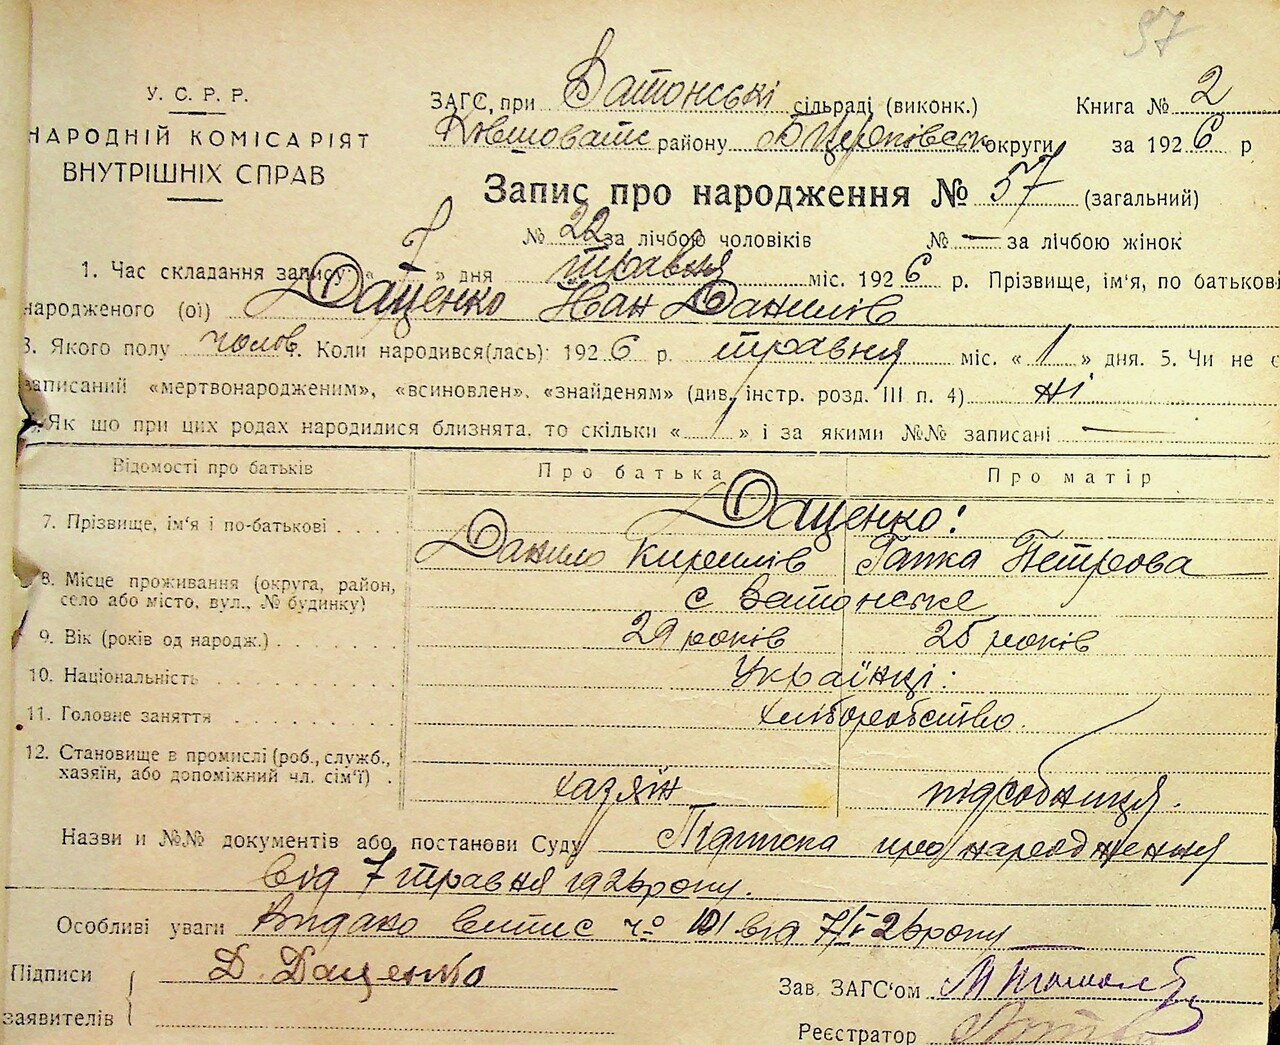 57
У. С. Р. Р.
НАРОДНІЙ КОМІСАРІЯТ
ВНУТРІШНІХ СПРАВ
ЗАГС, при Ватонські сільраді (виконк.) Книга № 2
Ковшоватс району Б Церківськ округи за 1926 р
Запис про народження № 57 (загальний)
№ 22 за лічбою чоловіків № — за лічбою жінок
1. Час складання запису: « 7 » дня травня міс. 1926 р. Прізвище, ім'я, по батькові
народженого (ої) Даценко Іван Данилів
3. Якого полу чолов. Коли народився(лась): 1926 р. травня міс. « 1 » дня. 5. Чи не є
записаний «мертвонародженим», «всиновлен», «знайденям» (див. інстр. розд. III п. 4) ні
Як що при цих родах народилися близнята, то скільки « 1 » і за якими №№ записані —
Відомості про батьків Про батька Про матір
7. Прізвище, ім'я і по-батькові Даценко:
Данило Кирилів Гапка Петрова
8. Місце проживання (округа, район,
село або місто, вул., № будинку) с Ватонське
9. Вік (років од народж.) 29 років 25 років
10. Національність Українці:
11. Головне заняття хліборобство.
12. Становище в промислі (роб., служб.,
хазяїн, або допоміжний чл. сім'ї) хазяїн підсобниця.
Назви и №№ документів або постанови Суду Підписка про народження
від 7 травня 1926 року.
Особливі уваги Видано витис ч० 101 від 7/V 26 року
Підписи Д. Даценко
заявителів
Зав. ЗАГС'ом
Реєстратор